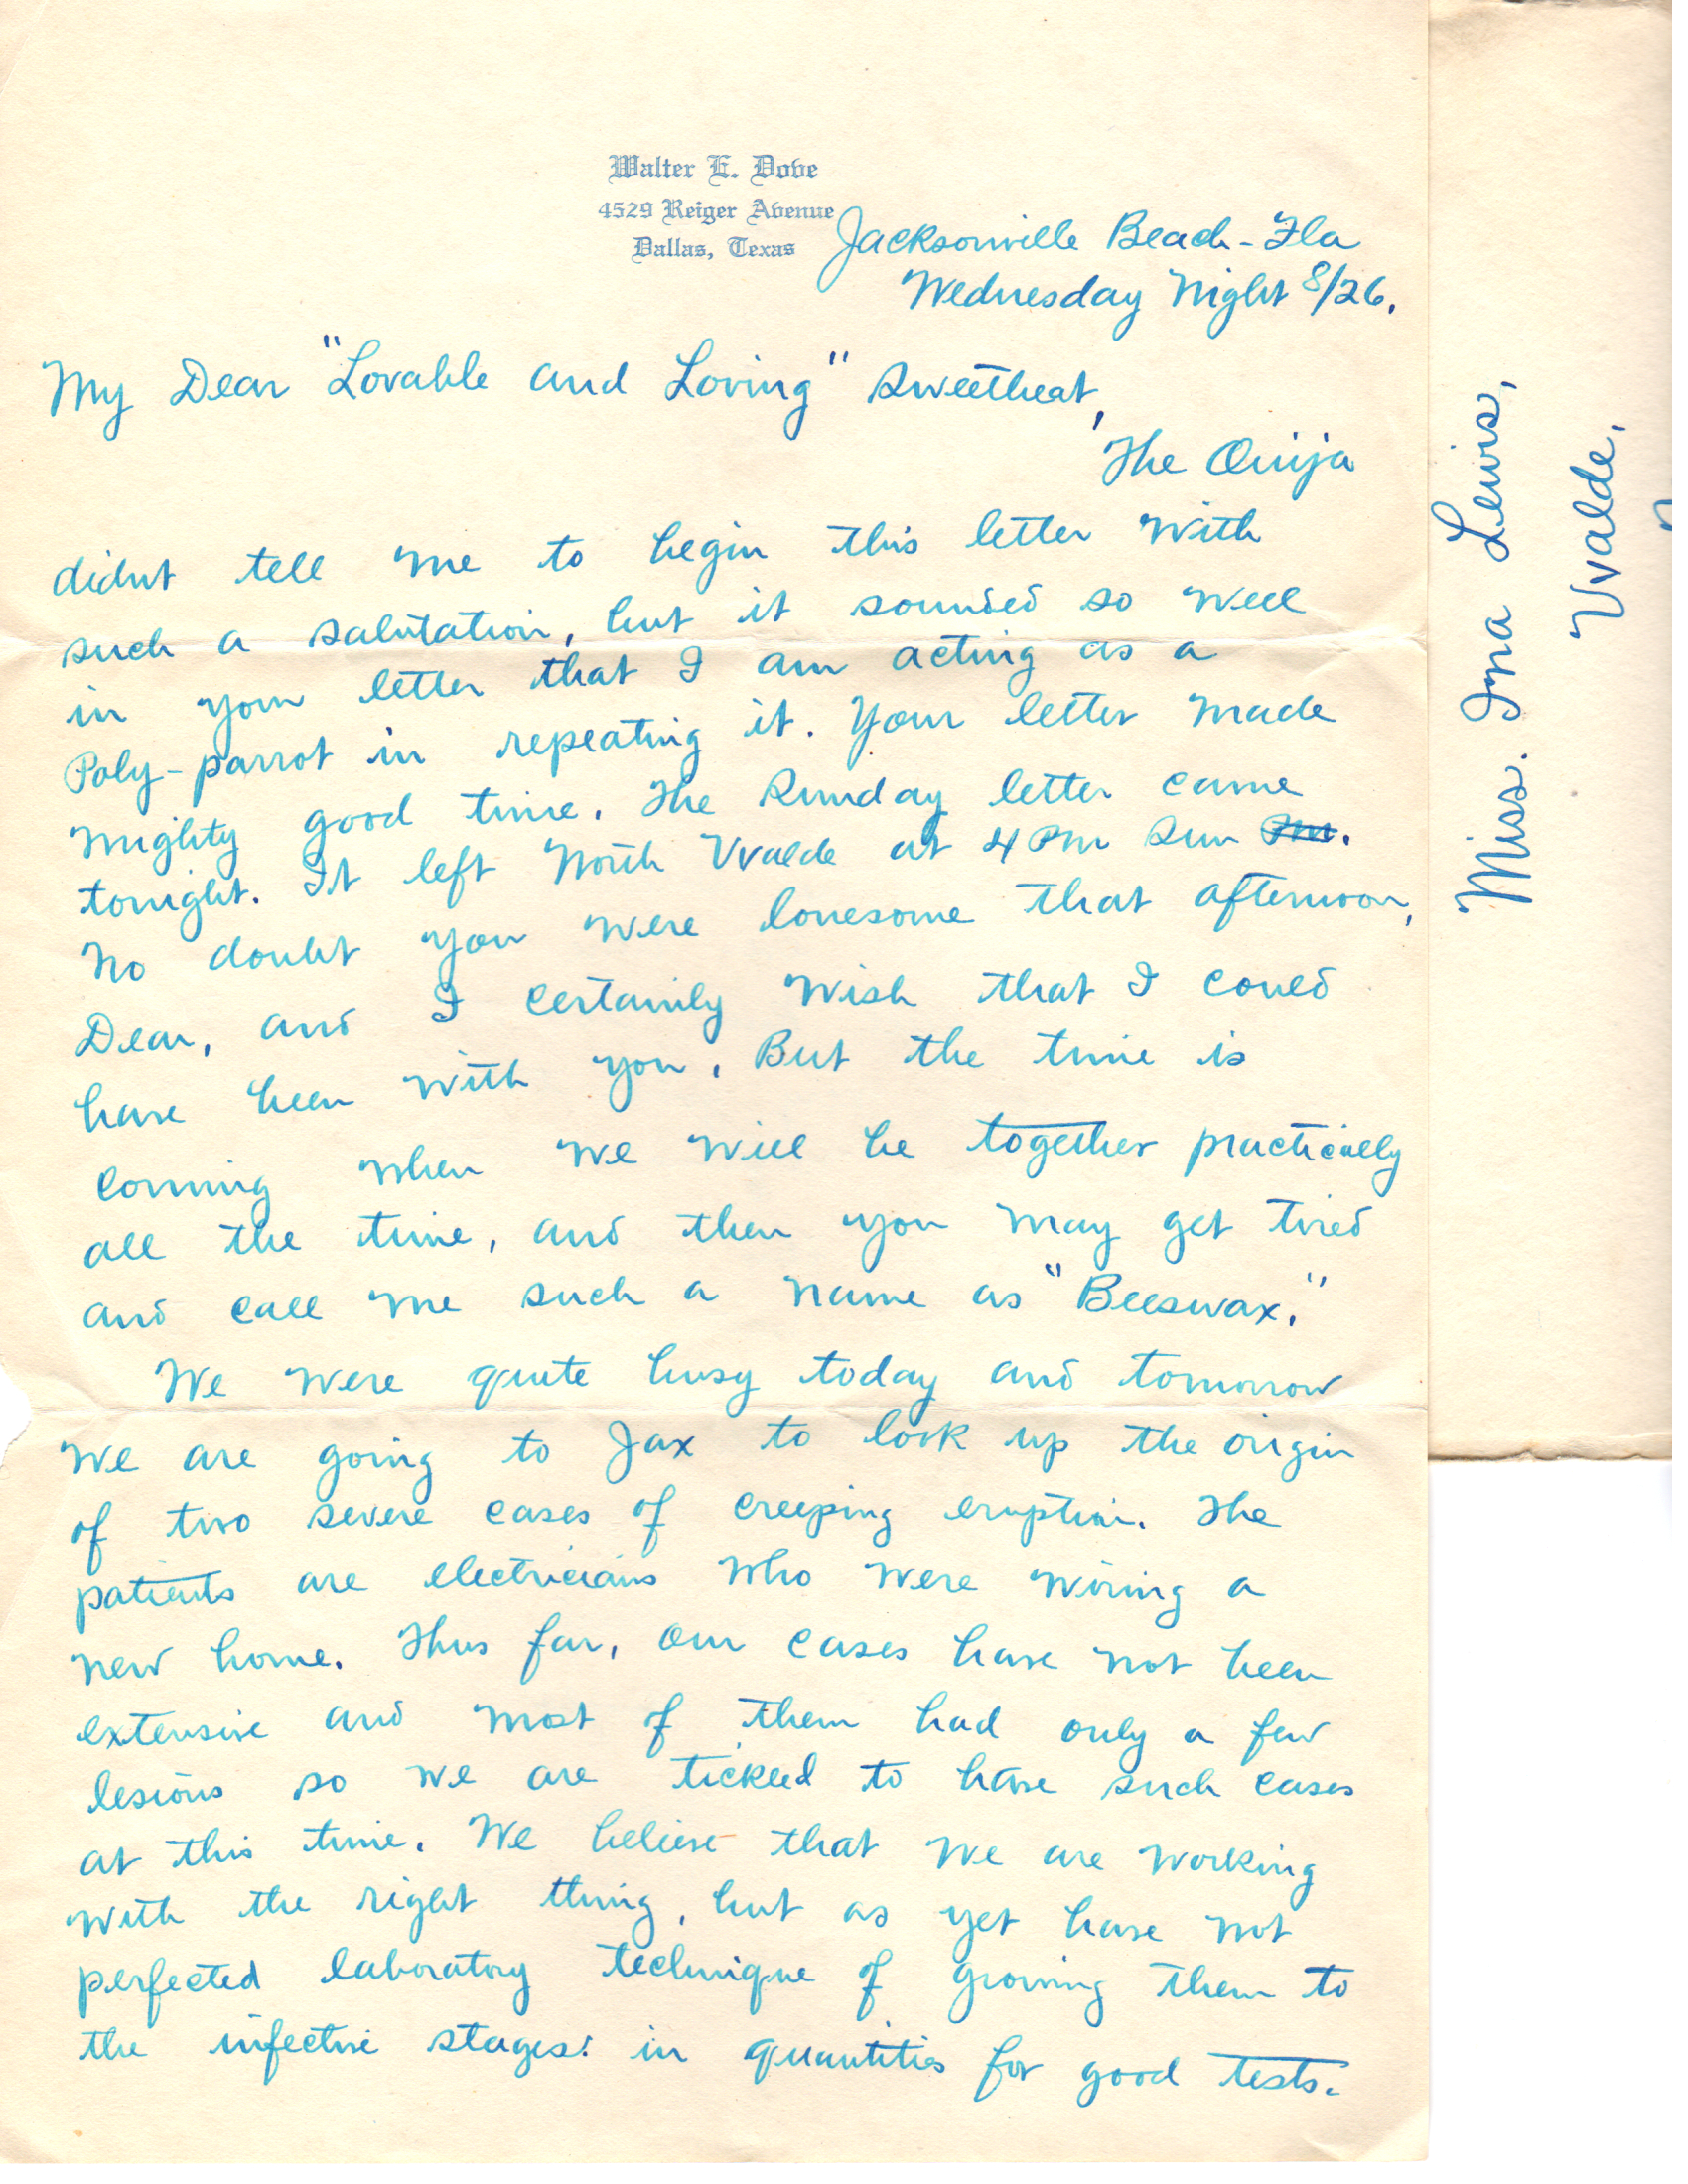 Walter E. Dove
4529 Reiger Avenue
Dallas, Texas
Jacksonville Beach - Fla
Wednesday Night 8/26.
My Dear "Lovable and Loving" Sweetheat,
The Ouija
didnt tell me to begin this letter with
such a salutation, but it sounded so well
in your letter that I am acting as a
Poly-parrot in repeating it. Your letter made
mighty good time. The Sunday letter came
tonight. It left North Uvalde at 4 PM Sun PM.
No doubt you were lonesome that afternoon,
Dear, and I certainly wish that I could
have been with you. But the time is
coming when we will be together practically
all the time, and then you may get tired
and call me such a name as "Beeswax."
We were quite busy today and tomorrow
we are going to Jax to look up the origin
of two severe cases of creeping eruption. The
patients are electricians who were wiring a
new home. Thus far, our cases have not been
extensive and most of them had only a few
lesions so we are tickled to have such cases
at this time. We believe that we are working
with the right thing, but as yet have not
perfected laboratory technique of growing them to
the infective stages in quantities for good tests.
Miss. Ina Lewis,
Uvalde,